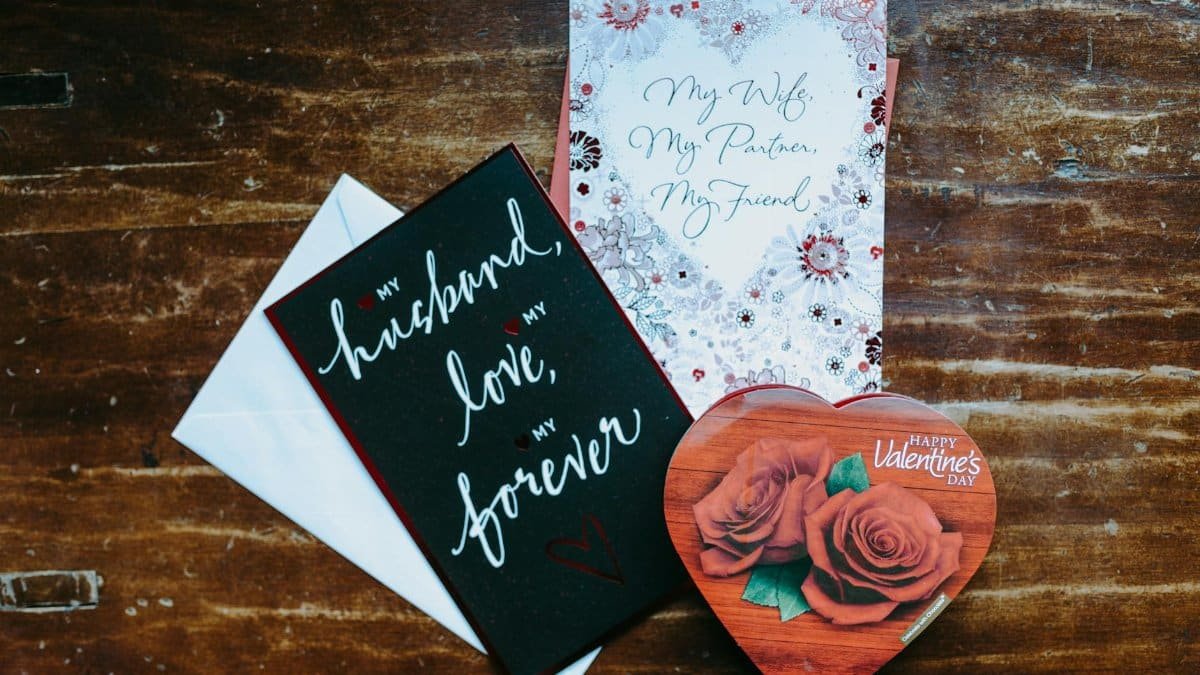 My Wife,
My Partner,
My Friend
MY
husband,
MY
love,
MY
forever
HAPPY
Valentine's
DAY
Celebrate with Chocolate